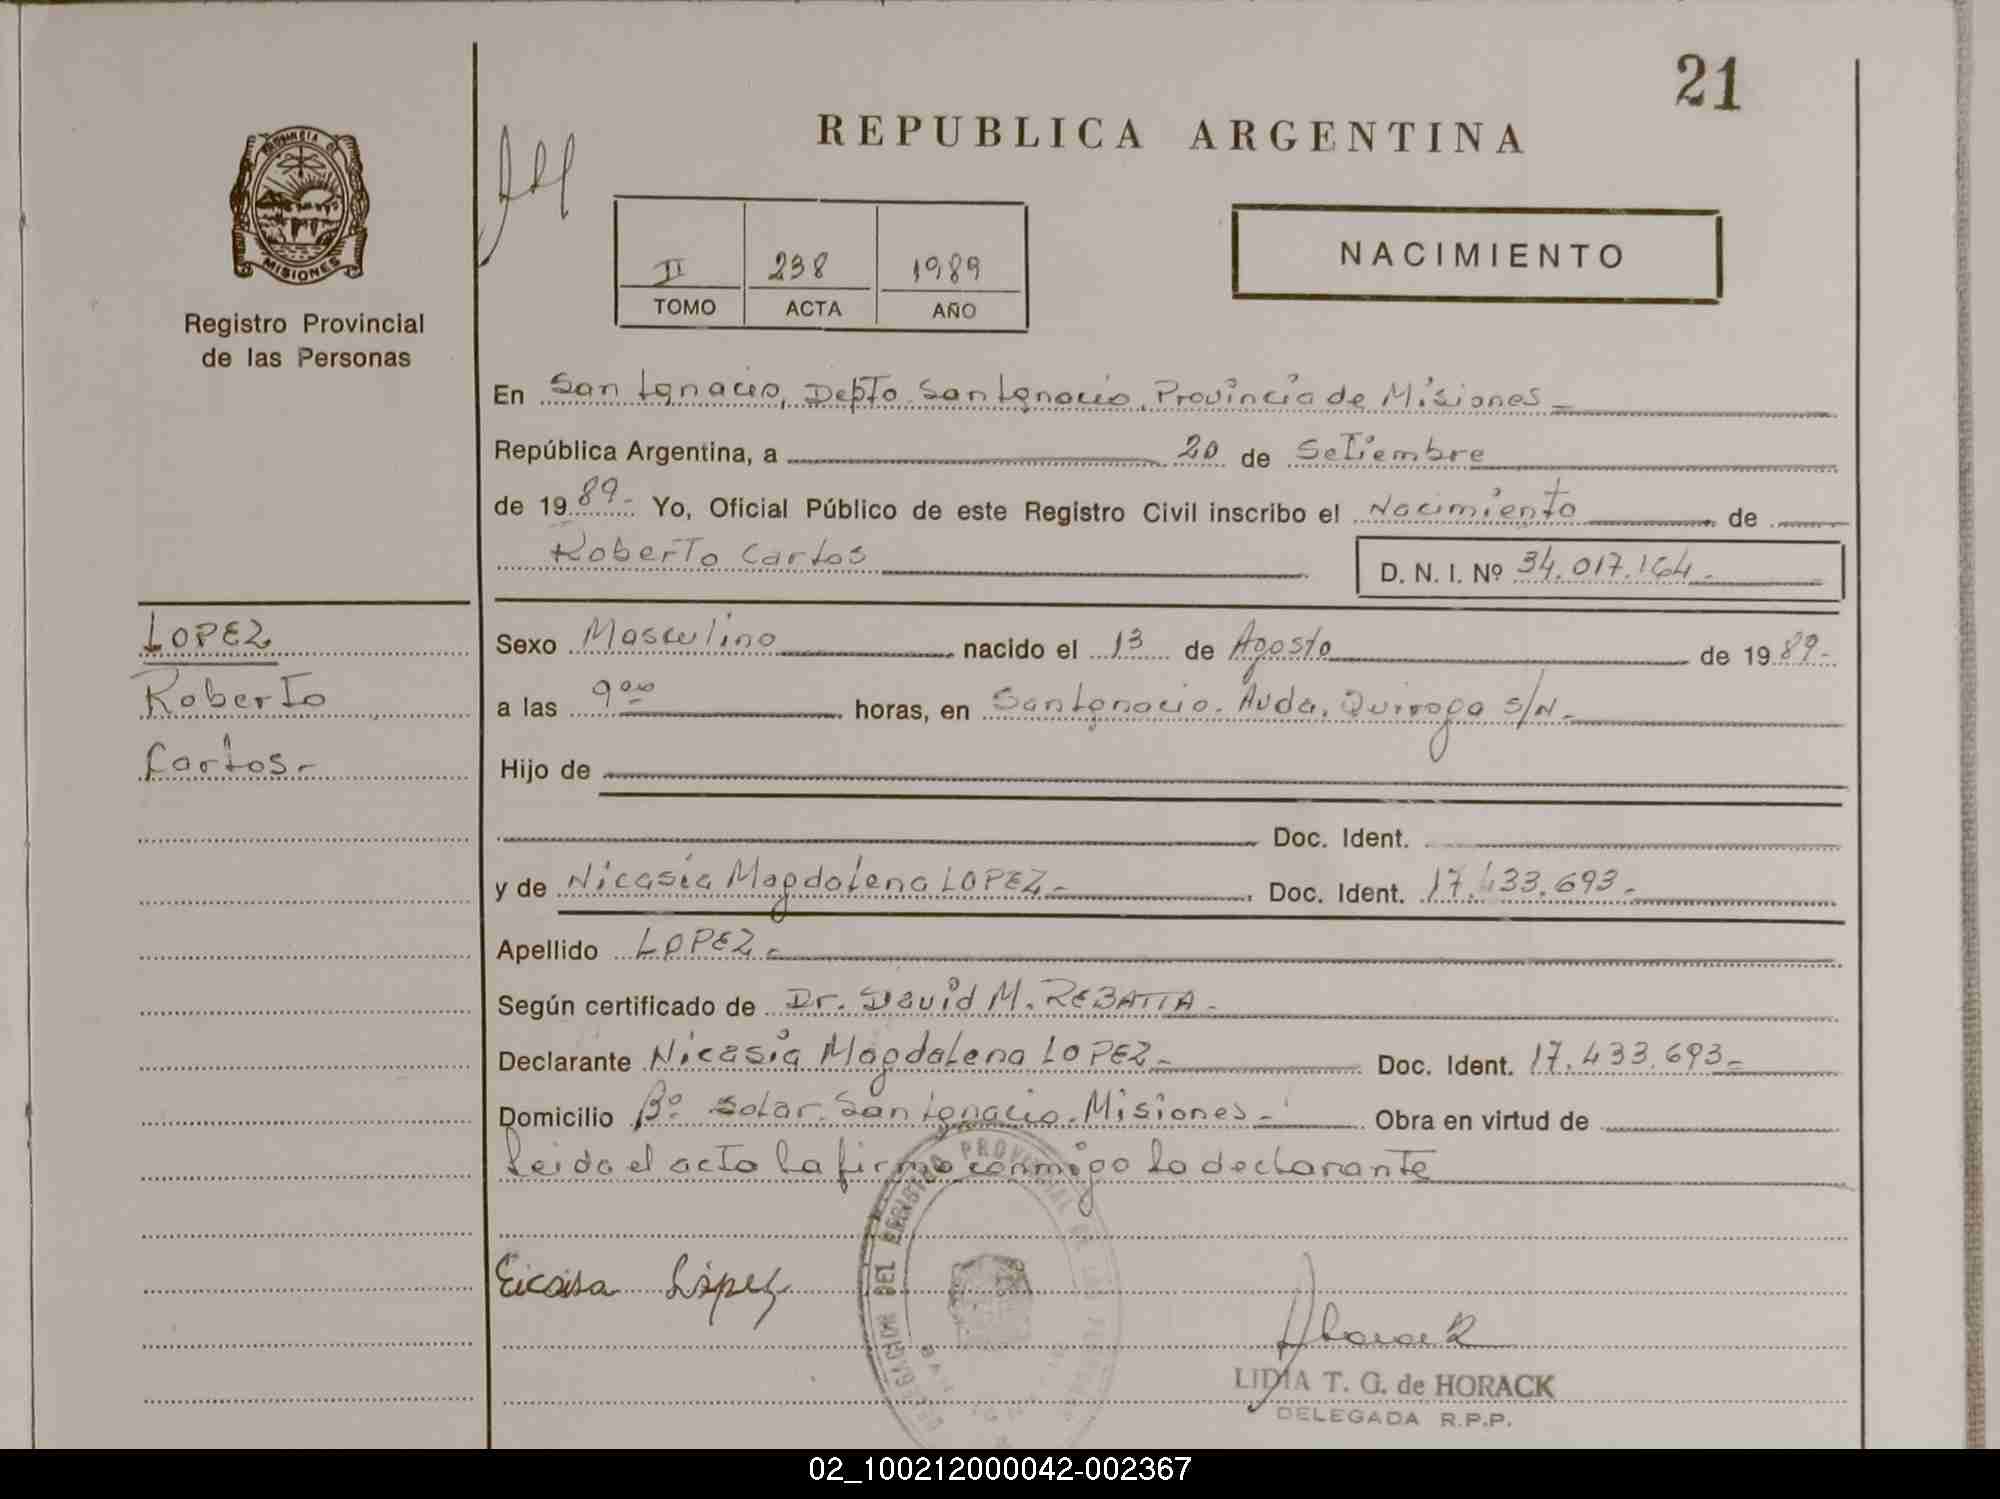 21
REPUBLICA ARGENTINA
PROVINCIA DE
MISIONES
Registro Provincial
de las Personas
II 238 1989
TOMO ACTA AÑO
NACIMIENTO
En San Ignacio, Depto San Ignacio, Provincia de Misiones
República Argentina, a 20 de Setiembre
de 1989- Yo, Oficial Público de este Registro Civil inscribo el Nacimiento de
Roberto Carlos D. N. I. Nº 34.017.164-
LOPEZ
Roberto
Carlos-
Sexo Masculino nacido el 13 de Agosto de 1989-
a las 9 00 horas, en San Ignacio. Avda. Quiroga S/N-
Hijo de
Doc. Ident.
y de Nicasia Magdalena LOPEZ- Doc. Ident. 17.433.693-
Apellido LOPEZ-
Según certificado de Dr. David M. REBATTA-
Declarante Nicasia Magdalena LOPEZ- Doc. Ident. 17.433.693-
Domicilio Bº Solar. San Ignacio. Misiones- Obra en virtud de
Leida el acta la firma conmigo la declarante
DEL REGISTRO PROVINCIAL DE LAS
Eicasia López
Horack
LIDIA T. G. de HORACK
DELEGADA R.P.P.
02_100212000042-002367